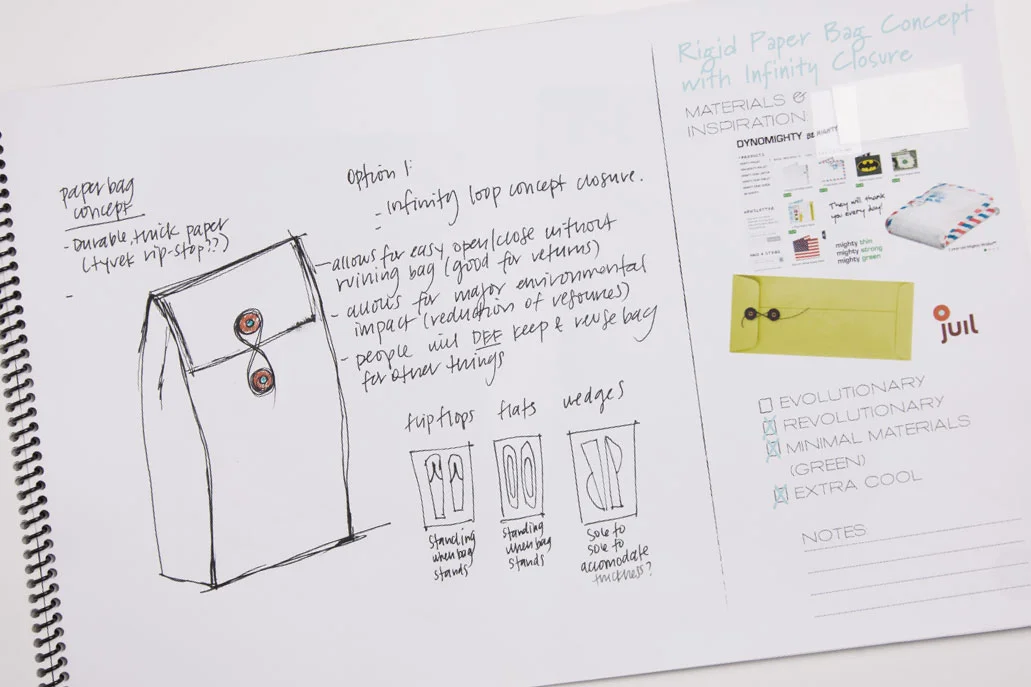 paper bag
concept
- Durable, thick paper
(tyvek rip-stop??)
-
Option 1:
- infinity loop concept closure.
-
- allows for easy open/close without
ruining bag (good for returns)
- allows for major environmental
impact (reduction of resources)
- people will DEF keep & reuse bag
for other things
flip flops
flats
wedges
standing
when bag
stands
standing
when bag
stands
sole to
sole to
accomodate
thickness?
Rigid Paper Bag Concept
with Infinity Closure
MATERIALS &
INSPIRATION
DYNOMIGHTY BE MIGHTY
They will thank
you every day!
mighty thin
mighty strong
mighty green
juil
EVOLUTIONARY
REVOLUTIONARY
MINIMAL MATERIALS
(GREEN)
EXTRA COOL
NOTES